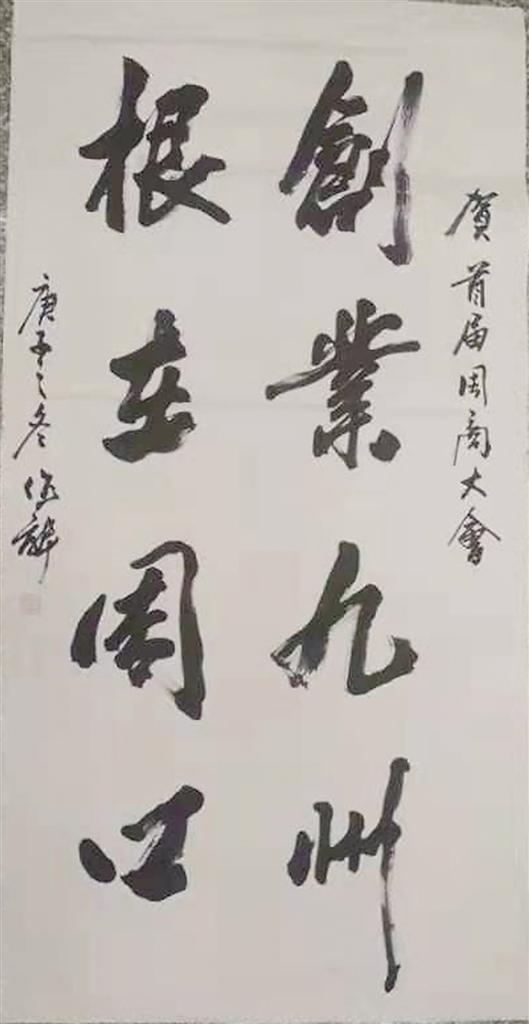 賀首届周商大會
創業九州
根在周口
庚子之冬